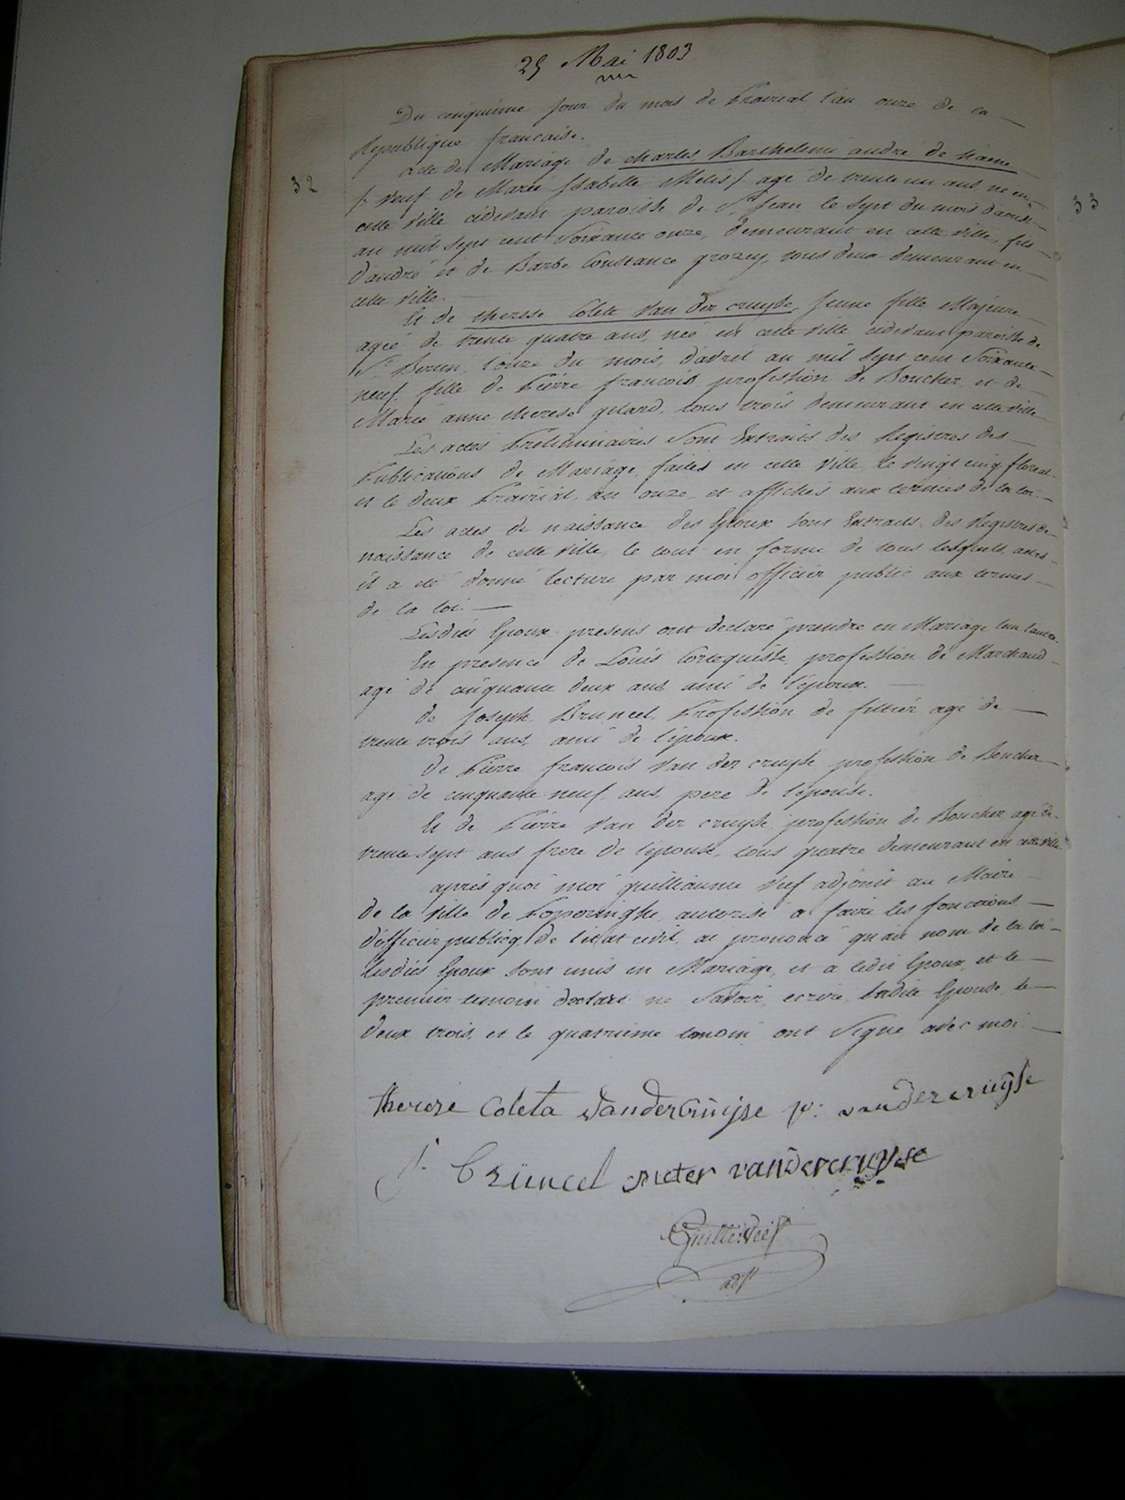 25 Mai 1803
Du cinquieme jour du mois de Prairial l'an onze de la
Republique francaise.
32
33
acte de Mariage de charles Barthelemi andré de haene
/ veuf de Marie Isabelle Melis / agé de trente un ans né en
cette ville cidevant paroisse de St Jean le sept du mois d'aoust
an mil sept cent Soixante onze, demeurant en cette ville, fils
d'andré et de Barbe Constance grozey, tous deux demeurant en
cette ville.
Et de therese Colete Van der cruyse Jeune fille Majeure
agée de trente quatre ans, née en cette ville cidevant paroisse de
St Bertin, l'onze du mois, d'avril an mil sept cent Soixante
neuf, fille de Pierre francois profession de Boucher, et de
Marie anne therese gelard, tous trois demeurant en cette ville
Les actes Preliminaires Sont Extraits des Registres des
Publications de Mariage, faites en cette ville, le vingt cinq floreal
et le deux Prairial, an onze, et affichés aux termes de la loi.
Les actes de naissance des Epoux sont Extraits, des Registres de
naissance de cette ville, le tout en forme de tous lesquels actes
il a eté donné lecture par moi officier public aux termes
de la loi.
Lesdits Epoux presens ont declaré prendre en Mariage l'un l'autre.
En presence de Louis profession de Marchand
agé de cinquante deux ans ami de l'époux.
de Joseph Bruncel, Profession de agé de
trente trois ans, ami de l'époux.
de Pierre francois Van der cruyse profession de Boucher
agé de cinquante neuf ans pere de l'épouse.
Et de Pierre Van der cruyse, profession de Boucher agé de
trente sept ans frere de l'épouse, tous quatre demeurant en cette ville
après quoi moi guilliaume Vief adjoint au Maire
de la Ville de Poperinghe, autorisé a faire les fonctions
d'officier publicq de l'état civil, ai prononcé qu'au nom de la loi
lesdits Epoux sont unis en Mariage, et a ledit Epoux, et le
premier temoin declaré ne Savoir, ecrire ladite Epouse, le
deux trois, et le quatrieme temoin ont Signé avec moi
therese Coleta Vandercruijse p: vandercruijse
J. brüncel pieter vandercruyse
Guill: Vief
adj